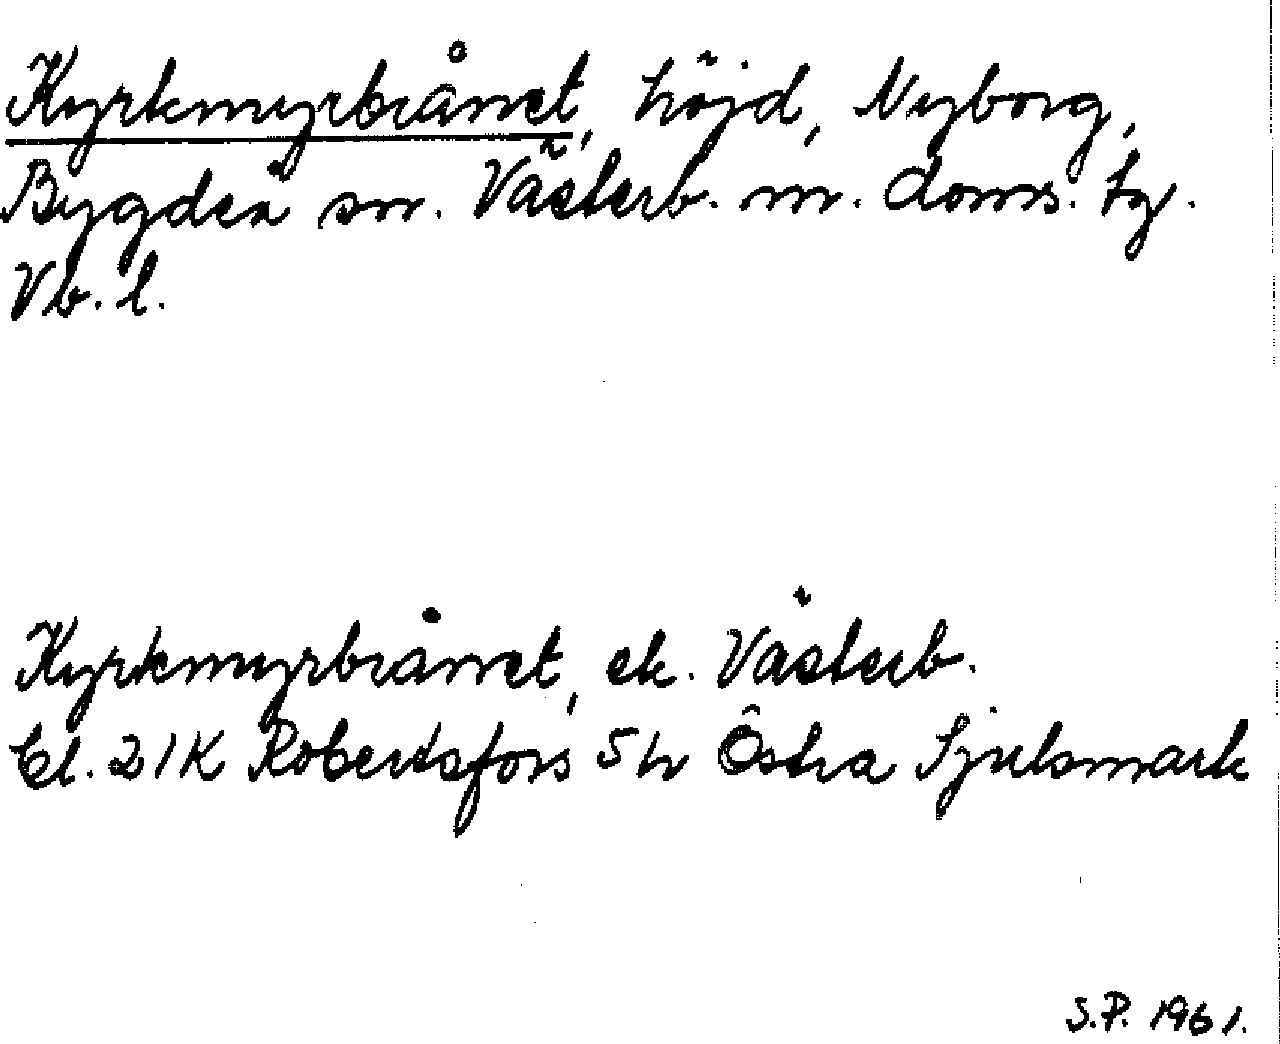 Kyrkmyrbrånet, höjd, Nyborg,
Bygdeå sn. Västerb. m. doms. tg.
Vb. l.
Kyrkmyrbrånet, ek. Västerb.
Bl. 21K Robertsfors 5h Östra Sjulsmark
S.P. 1961.